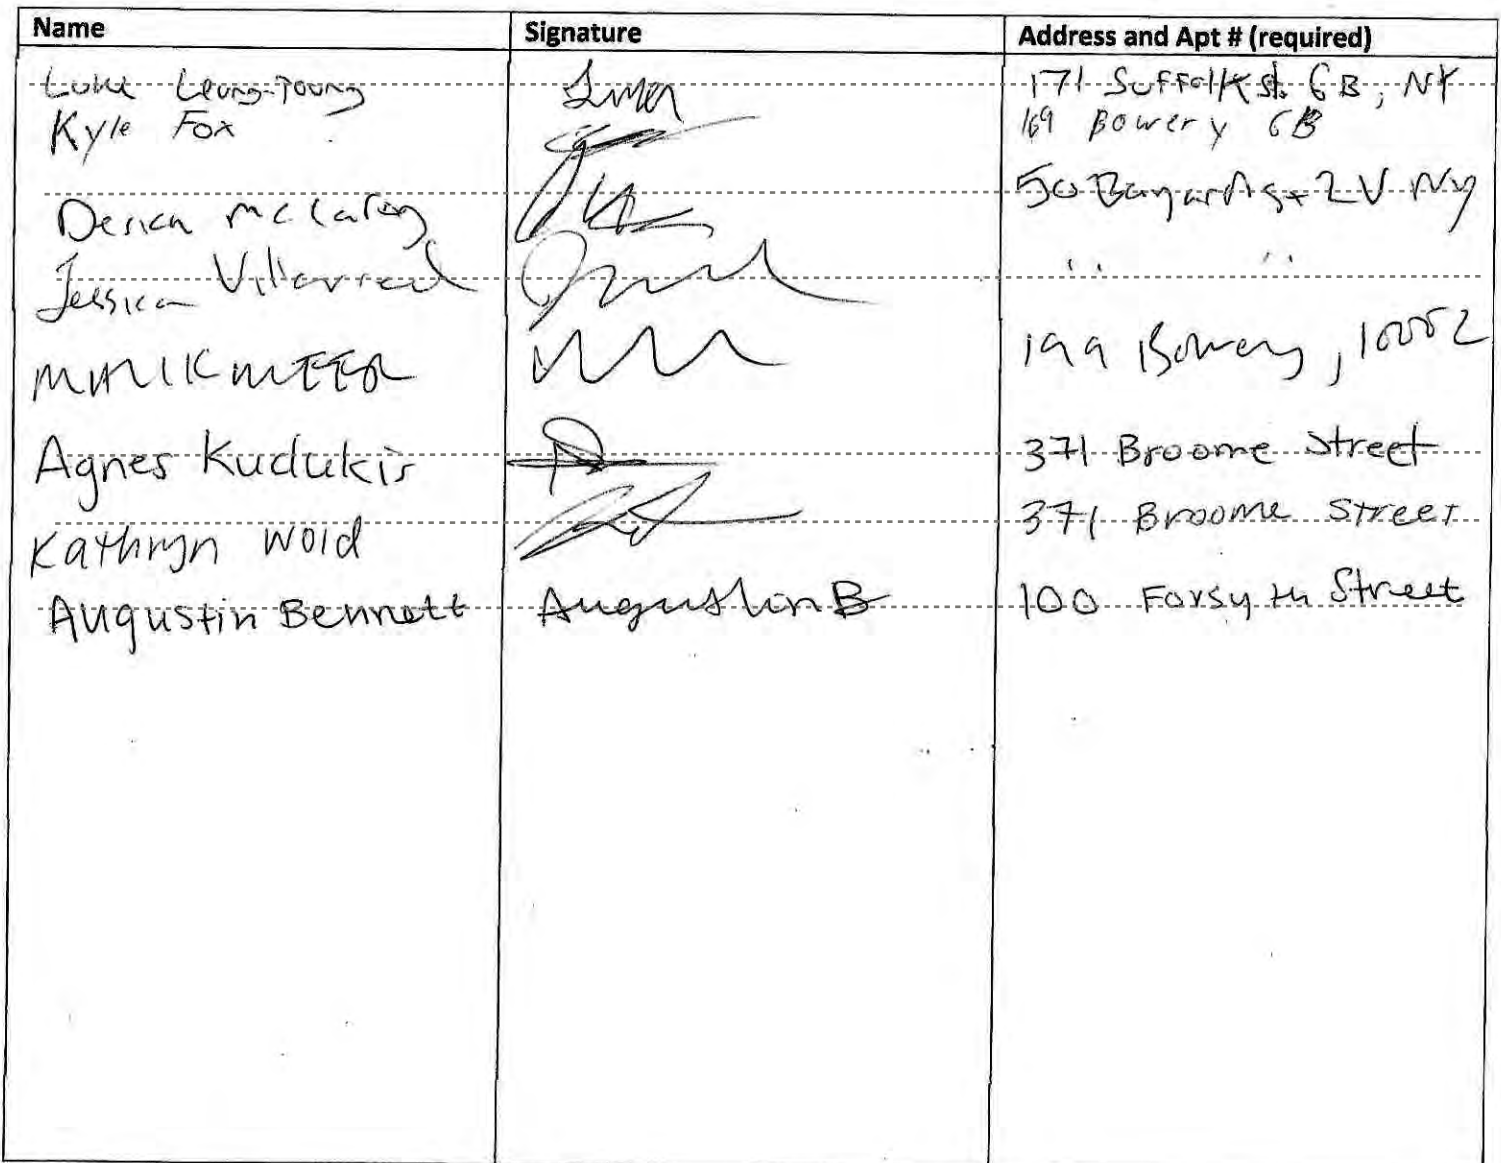 Name Signature Address and Apt # (required)
Luke Leong-Young 171 Suffolk st. 6B, NY
Kyle Fox 169 Bowery 6B
50 Bayard st 2V NY
Jessica Villarreal " "
MALIK MEER 199 Bowery, 10002
Agnes Kudukis 371 Broome Street
Kathryn Wold 371 Broome Street
Augustin Bennett Augustin B 100 Forsyth Street